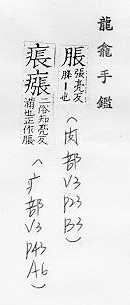 龍龕手鑑
脹張亮反脹丨也
（肉部V3P23B3）
痮瘬二俗知亮反滿也正作脹
（疒部V3P43A6）